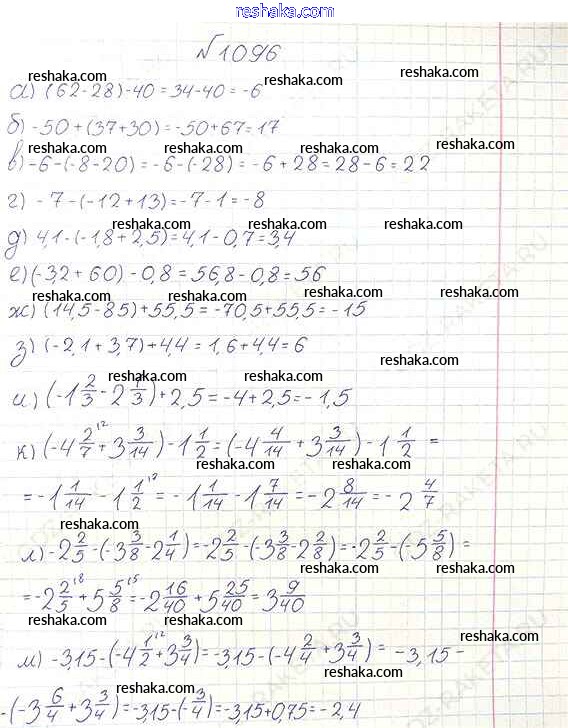 reshaka.com
№1096
reshaka.com reshaka.com reshaka.com
а) (62-28)-40=34-40=-6
б) -50+(37+30)=-50+67=17
reshaka.com reshaka.com reshaka.com
в) -6-(-8-20)=-6-(-28)=-6+28=28-6=22
г) -7-(-12+13)=-7-1=-8
reshaka.com reshaka.com reshaka.com
д) 4,1-(-1,8+2,5)=4,1-0,7=3,4
е) (-3,2+60)-0,8=56,8-0,8=56
reshaka.com reshaka.com reshaka.com
ж) (14,5-85)+55,5=-70,5+55,5=-15
з) (-2,1+3,7)+4,4=1,6+4,4=6
reshaka.com
reshaka.com reshaka.com
и) (-1 2/3-2 1/3)+2,5=-4+2,5=-1,5
к) (-4 2/7+3 3/14)-1 1/2=(-4 4/14+3 3/14)-1 1/2=
reshaka.com reshaka.com
=-1 1/14-1 1/2=-1 1/14-1 7/14=-2 8/14=-2 4/7
reshaka.com
л) -2 2/5-(-3 3/8-2 1/4)=-2 2/5-(-3 3/8-2 2/8)=-2 2/5-(-5 5/8)=
reshaka.com reshaka.com
=-2 2/5+5 5/8=-2 16/40+5 25/40=3 9/40
reshaka.com reshaka.com
м) -3,15-(-4 1/2+3 3/4)=-3,15-(-4 2/4+3 3/4)=-3,15-
reshaka.com
-(-3 6/4+3 3/4)=-3,15-(-3/4)=-3,15+0,75=-2,4
reshaka.com reshaka.com